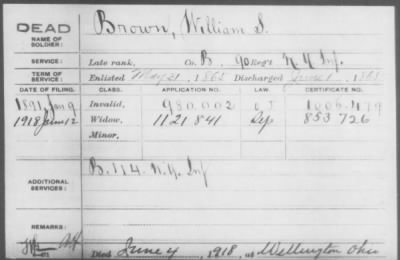 DEAD Brown, William S.
NAME OF SOLDIER:
SERVICE: Late rank, Co. B, 90 Reg't N. Y. Inf.
TERM OF SERVICE: Enlisted May 31, 1865 Discharged June 1, 1865
DATE OF FILING. CLASS. APPLICATION NO. LAW. CERTIFICATE NO.
1891, Jan 9 Invalid. 980.002 1006.479
1918 June 12 Widow. 1121 841 853 726
Minor.
B. 114. N.Y. Inf
ADDITIONAL SERVICES:
REMARKS:
Died June 4, 1918, at Wellington Ohio